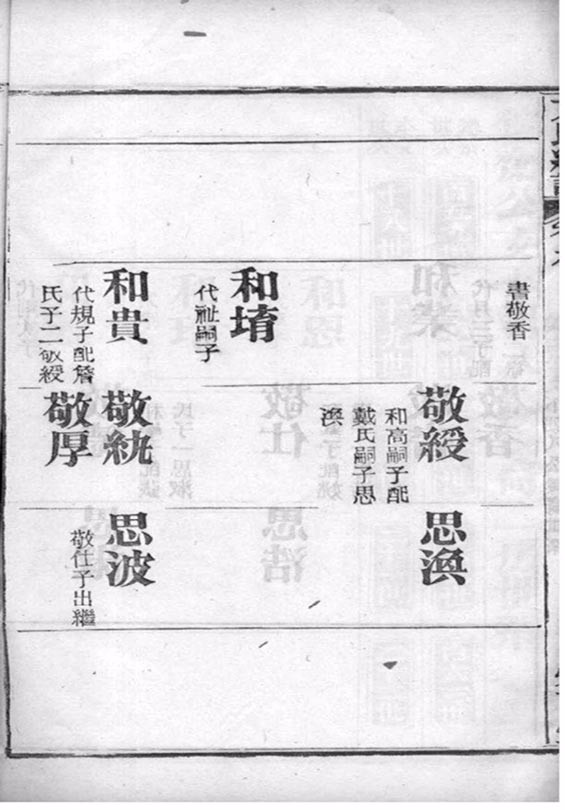 書敬香
敬綬
和高嗣子配
戴氏嗣子思
渙
思渙
和堉
代祉嗣子
和貴
代規子配詹
氏子二敬綬
敬統
敬厚
思波
敬仕子出繼